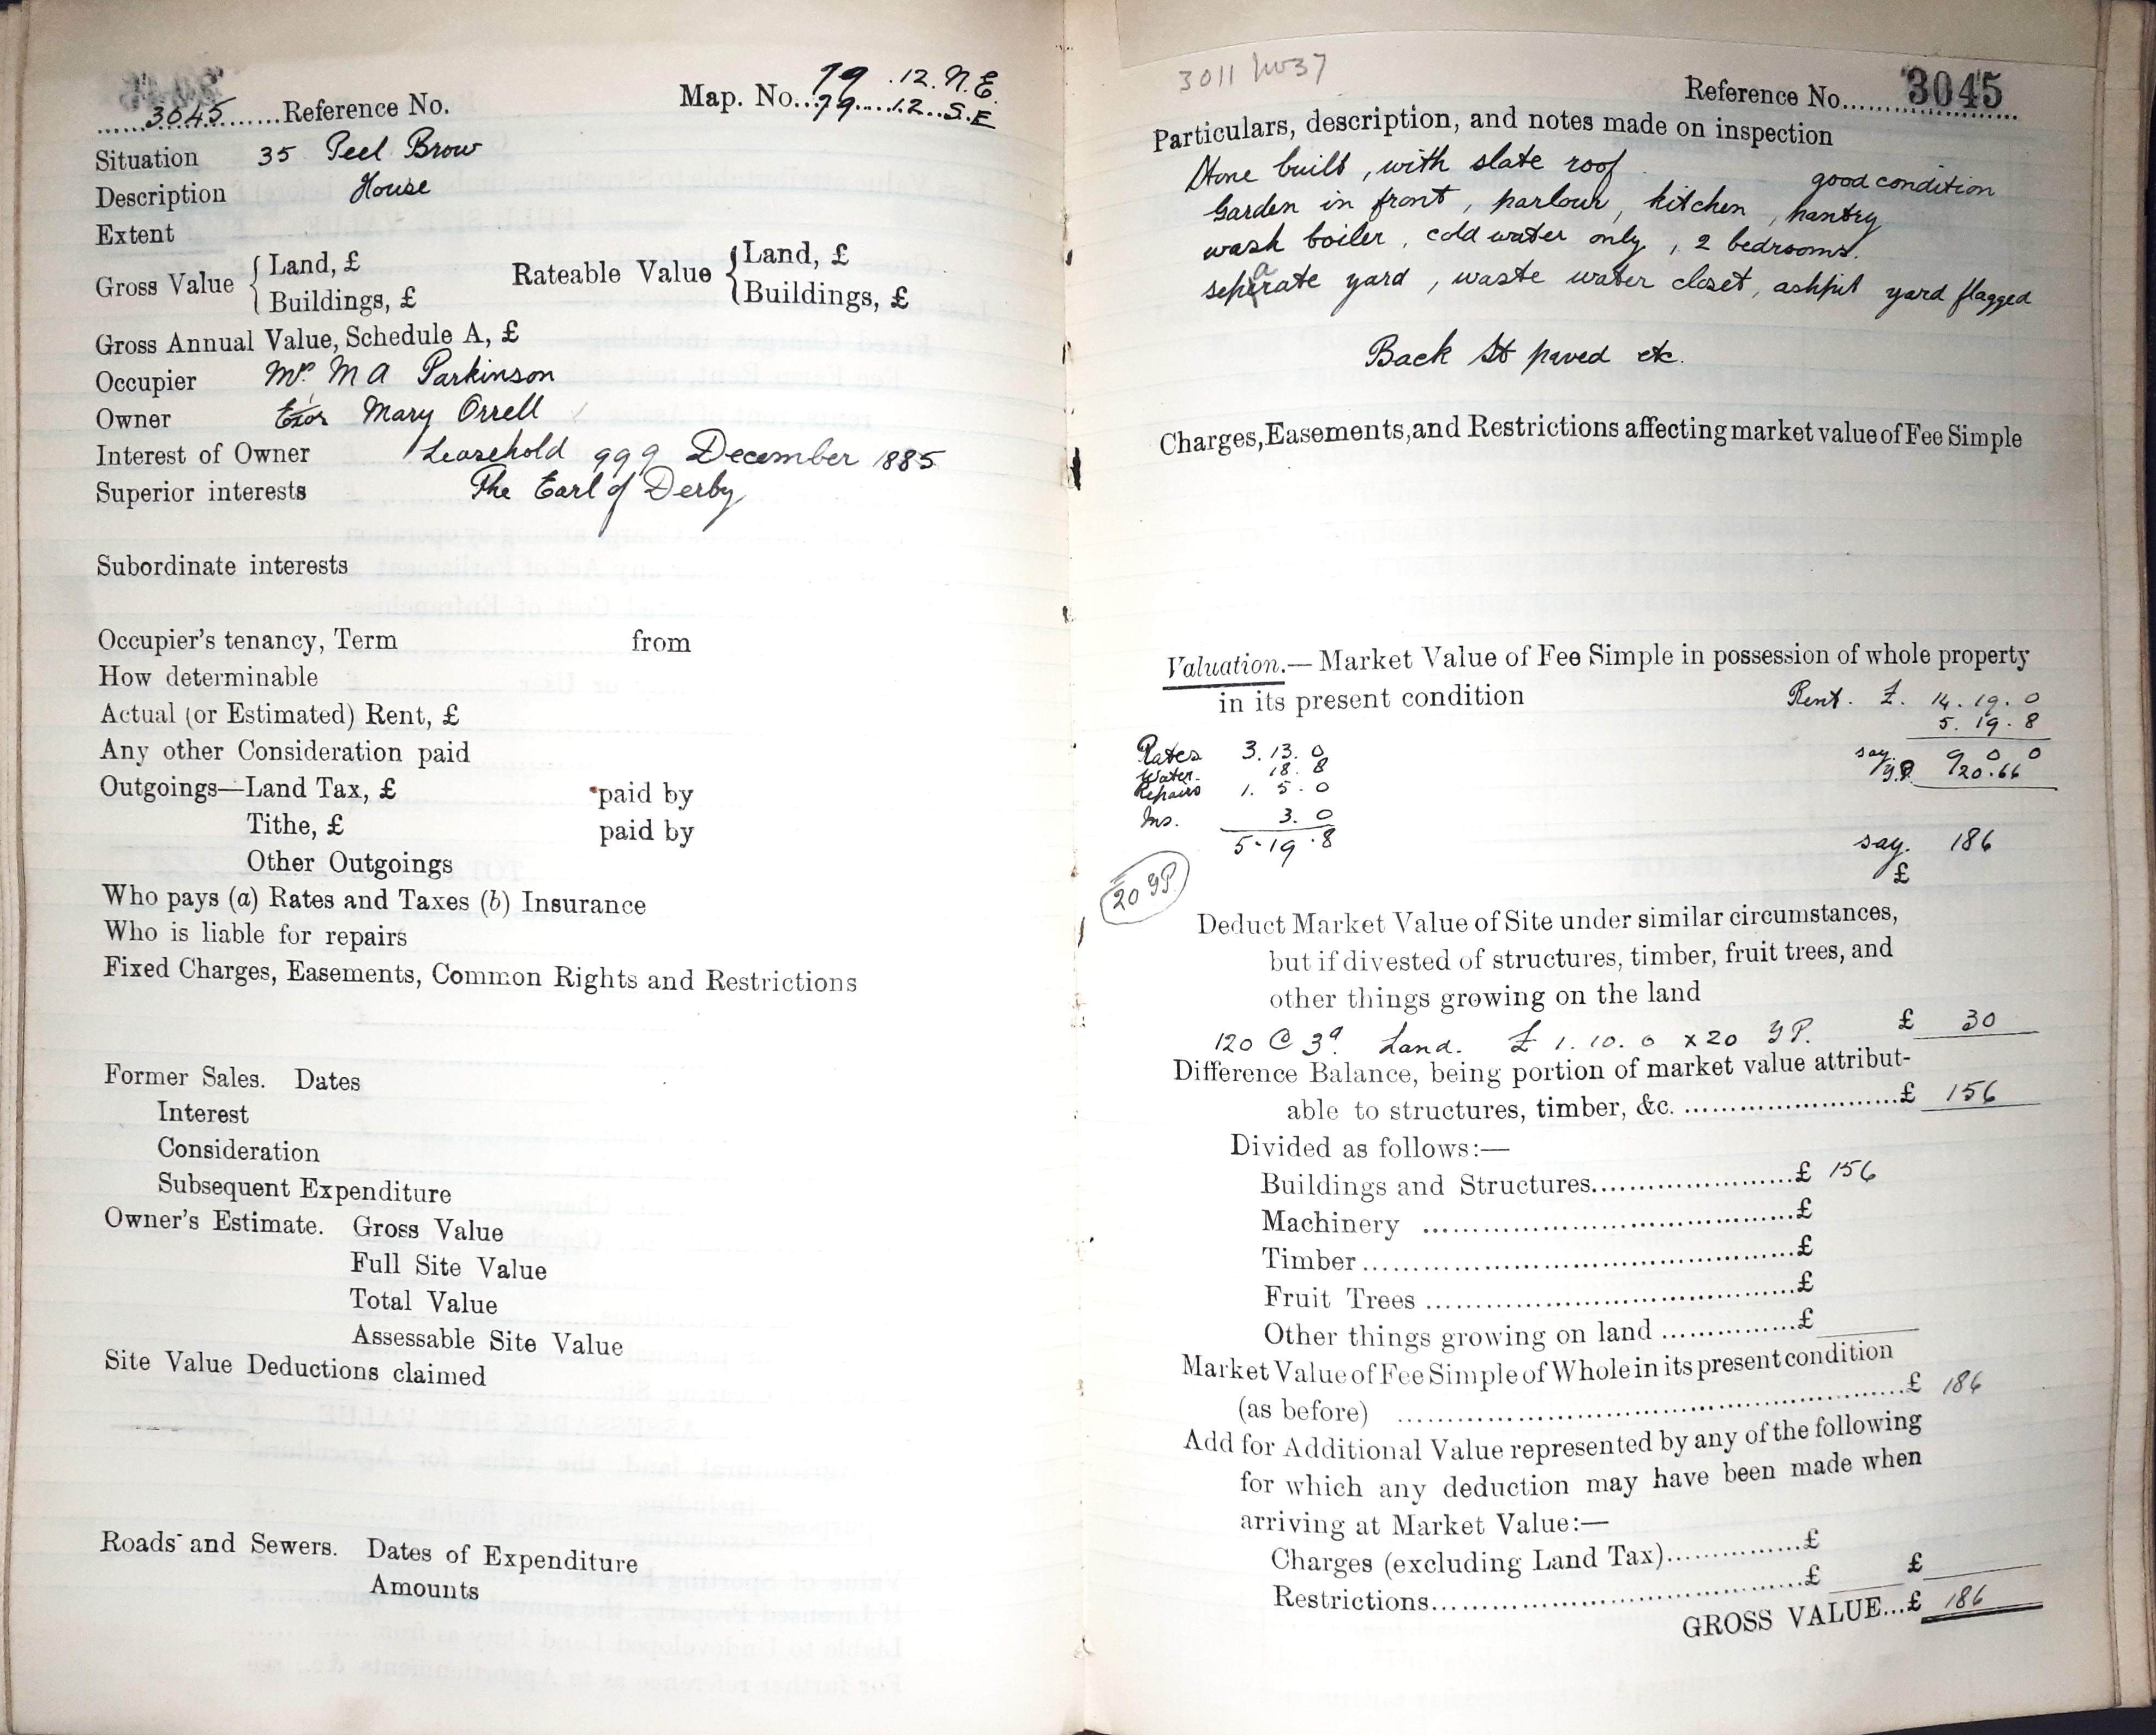 3045 Reference No. Map. No. 79. 12. N.E.
79. 12. S.E
Situation 35 Peel Brow
Description House
Extent
Gross Value { Land, £ Rateable Value { Land, £
Buildings, £ Buildings, £
Gross Annual Value, Schedule A, £
Occupier Mrs M A Parkinson
Owner Exors Mary Orrell
Interest of Owner Leasehold 999 December 1885
Superior interests The Earl of Derby
Subordinate interests
Occupier's tenancy, Term from
How determinable
Actual (or Estimated) Rent, £
Any other Consideration paid
Outgoings—Land Tax, £ paid by
Tithe, £ paid by
Other Outgoings
Who pays (a) Rates and Taxes (b) Insurance
Who is liable for repairs
Fixed Charges, Easements, Common Rights and Restrictions
Former Sales. Dates
Interest
Consideration
Subsequent Expenditure
Owner's Estimate. Gross Value
Full Site Value
Total Value
Assessable Site Value
Site Value Deductions claimed
Roads and Sewers. Dates of Expenditure
Amounts
3011
Reference No. 3045
Particulars, description, and notes made on inspection
Stone built, with slate roof good condition
Garden in front, parlour, kitchen, pantry
wash boiler, cold water only, 2 bedrooms.
separate yard, waste water closet, ashpit yard flagged
Back St paved etc.
Charges, Easements, and Restrictions affecting market value of Fee Simple
Valuation.— Market Value of Fee Simple in possession of whole property
in its present condition Rent. £. 14. 19. 0
5. 19. 8
Rates 3. 13. 0 say 9 0 0
Water. 18. 8 YP 20.66
Repairs 1. 5. 0
Ins. 3. 0
5. 19. 8 say. 186
20 YP. £
Deduct Market Value of Site under similar circumstances,
but if divested of structures, timber, fruit trees, and
other things growing on the land
120 @ 3d. Land. £ 1. 10. 0 x 20 YP. £ 30
Difference Balance, being portion of market value attribut-
able to structures, timber, &c. £ 156
Divided as follows:—
Buildings and Structures £ 156
Machinery £
Timber £
Fruit Trees £
Other things growing on land £
Market Value of Fee Simple of Whole in its present condition
(as before) £ 186
Add for Additional Value represented by any of the following
for which any deduction may have been made when
arriving at Market Value:—
Charges (excluding Land Tax) £
Restrictions £ £
GROSS VALUE...£ 186